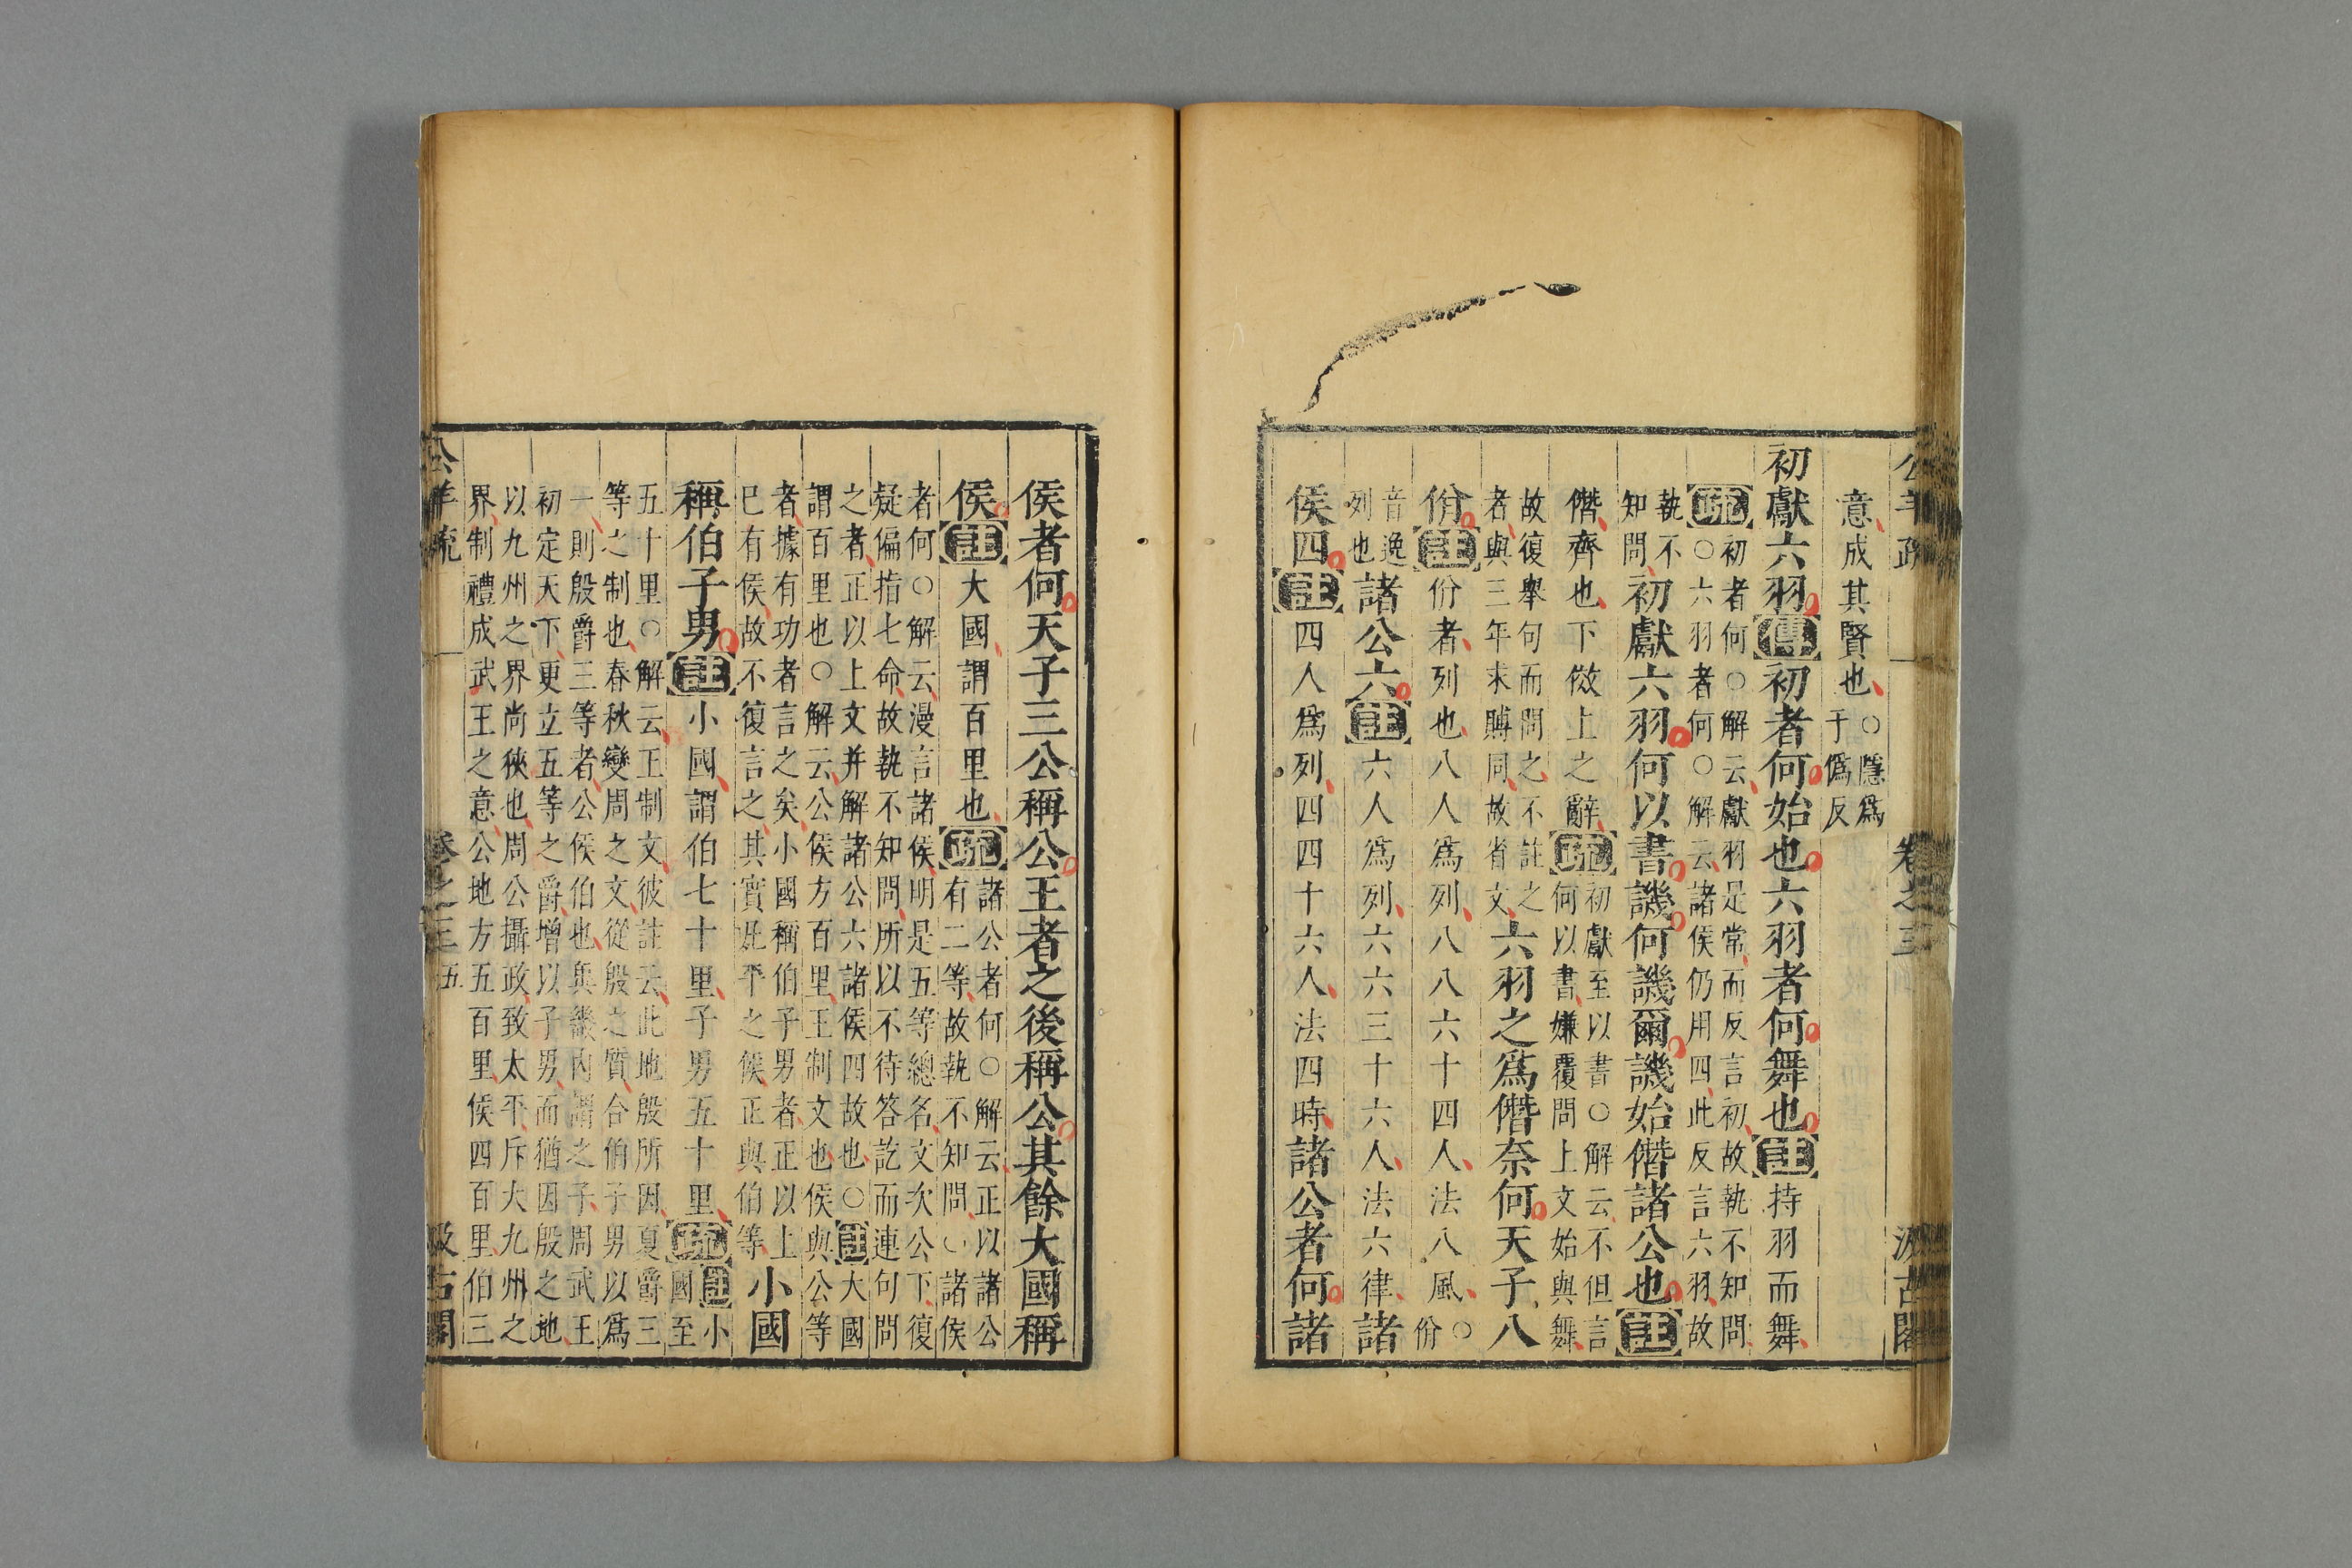 公羊疏 卷之三 汲古閣
意成其賢也○隱爲
于僞反
初獻六羽傳初者何始也六羽者何舞也註持羽而舞
疏初者何○解云獻羽是常而反言初故執不知問
○六羽者何○解云諸侯仍用四此反言六羽故
執不
知問初獻六羽何以書譏何譏爾譏始僭諸公也註
僭齊也下傚上之辭疏初獻至以書○解云不但言
何以書嫌覆問上文始與舞
故復舉句而問之不註之
者與三年末賻同故省文六羽之爲僭奈何天子八
佾註佾者列也八人爲列八八六十四人法八風○
佾
音逸
列也諸公六註六人爲列六六三十六人法六律諸
侯四註四人爲列四四十六人法四時諸公者何諸
侯者何天子三公稱公王者之後稱公其餘大國稱
侯註大國謂百里也疏諸公者何○解云正以諸公
有二等故執不知問○諸侯
者何○解云漫言諸侯明是五等總名文次公下復
疑偏指七命故執不知問所以不待答訖而連句問
之者正以上文并解諸公六諸侯四故也○註大國
謂百里也○解云公侯方百里王制文也侯與公等
者據有功者言之矣小國稱伯子男者正以上
已有侯故不復言之其實此平之侯正與伯等小國
稱伯子男註小國謂伯七十里子男五十里疏註小
國至
五十里○解云王制文彼註云此地殷所因夏爵三
等之制也春秋變周之文從殷之質合伯子男以爲
一則殷爵三等者公侯伯也異畿內謂之子周武王
初定天下更立五等之爵增以子男而猶因殷之地
以九州之界尚狹也周公攝政致太平斥大九州之
界制禮成武王之意公地方五百里侯四百里伯三
公羊疏 卷之三 五 汲古閣